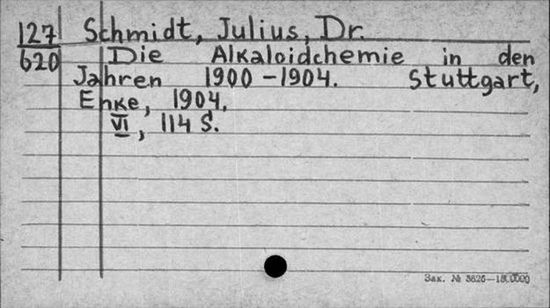 127 Schmidt, Julius, Dr.
620 Die Alkaloidchemie in den
Jahren 1900-1904. Stuttgart,
Enke, 1904.
VI, 114 S.
Зак. № 3626—